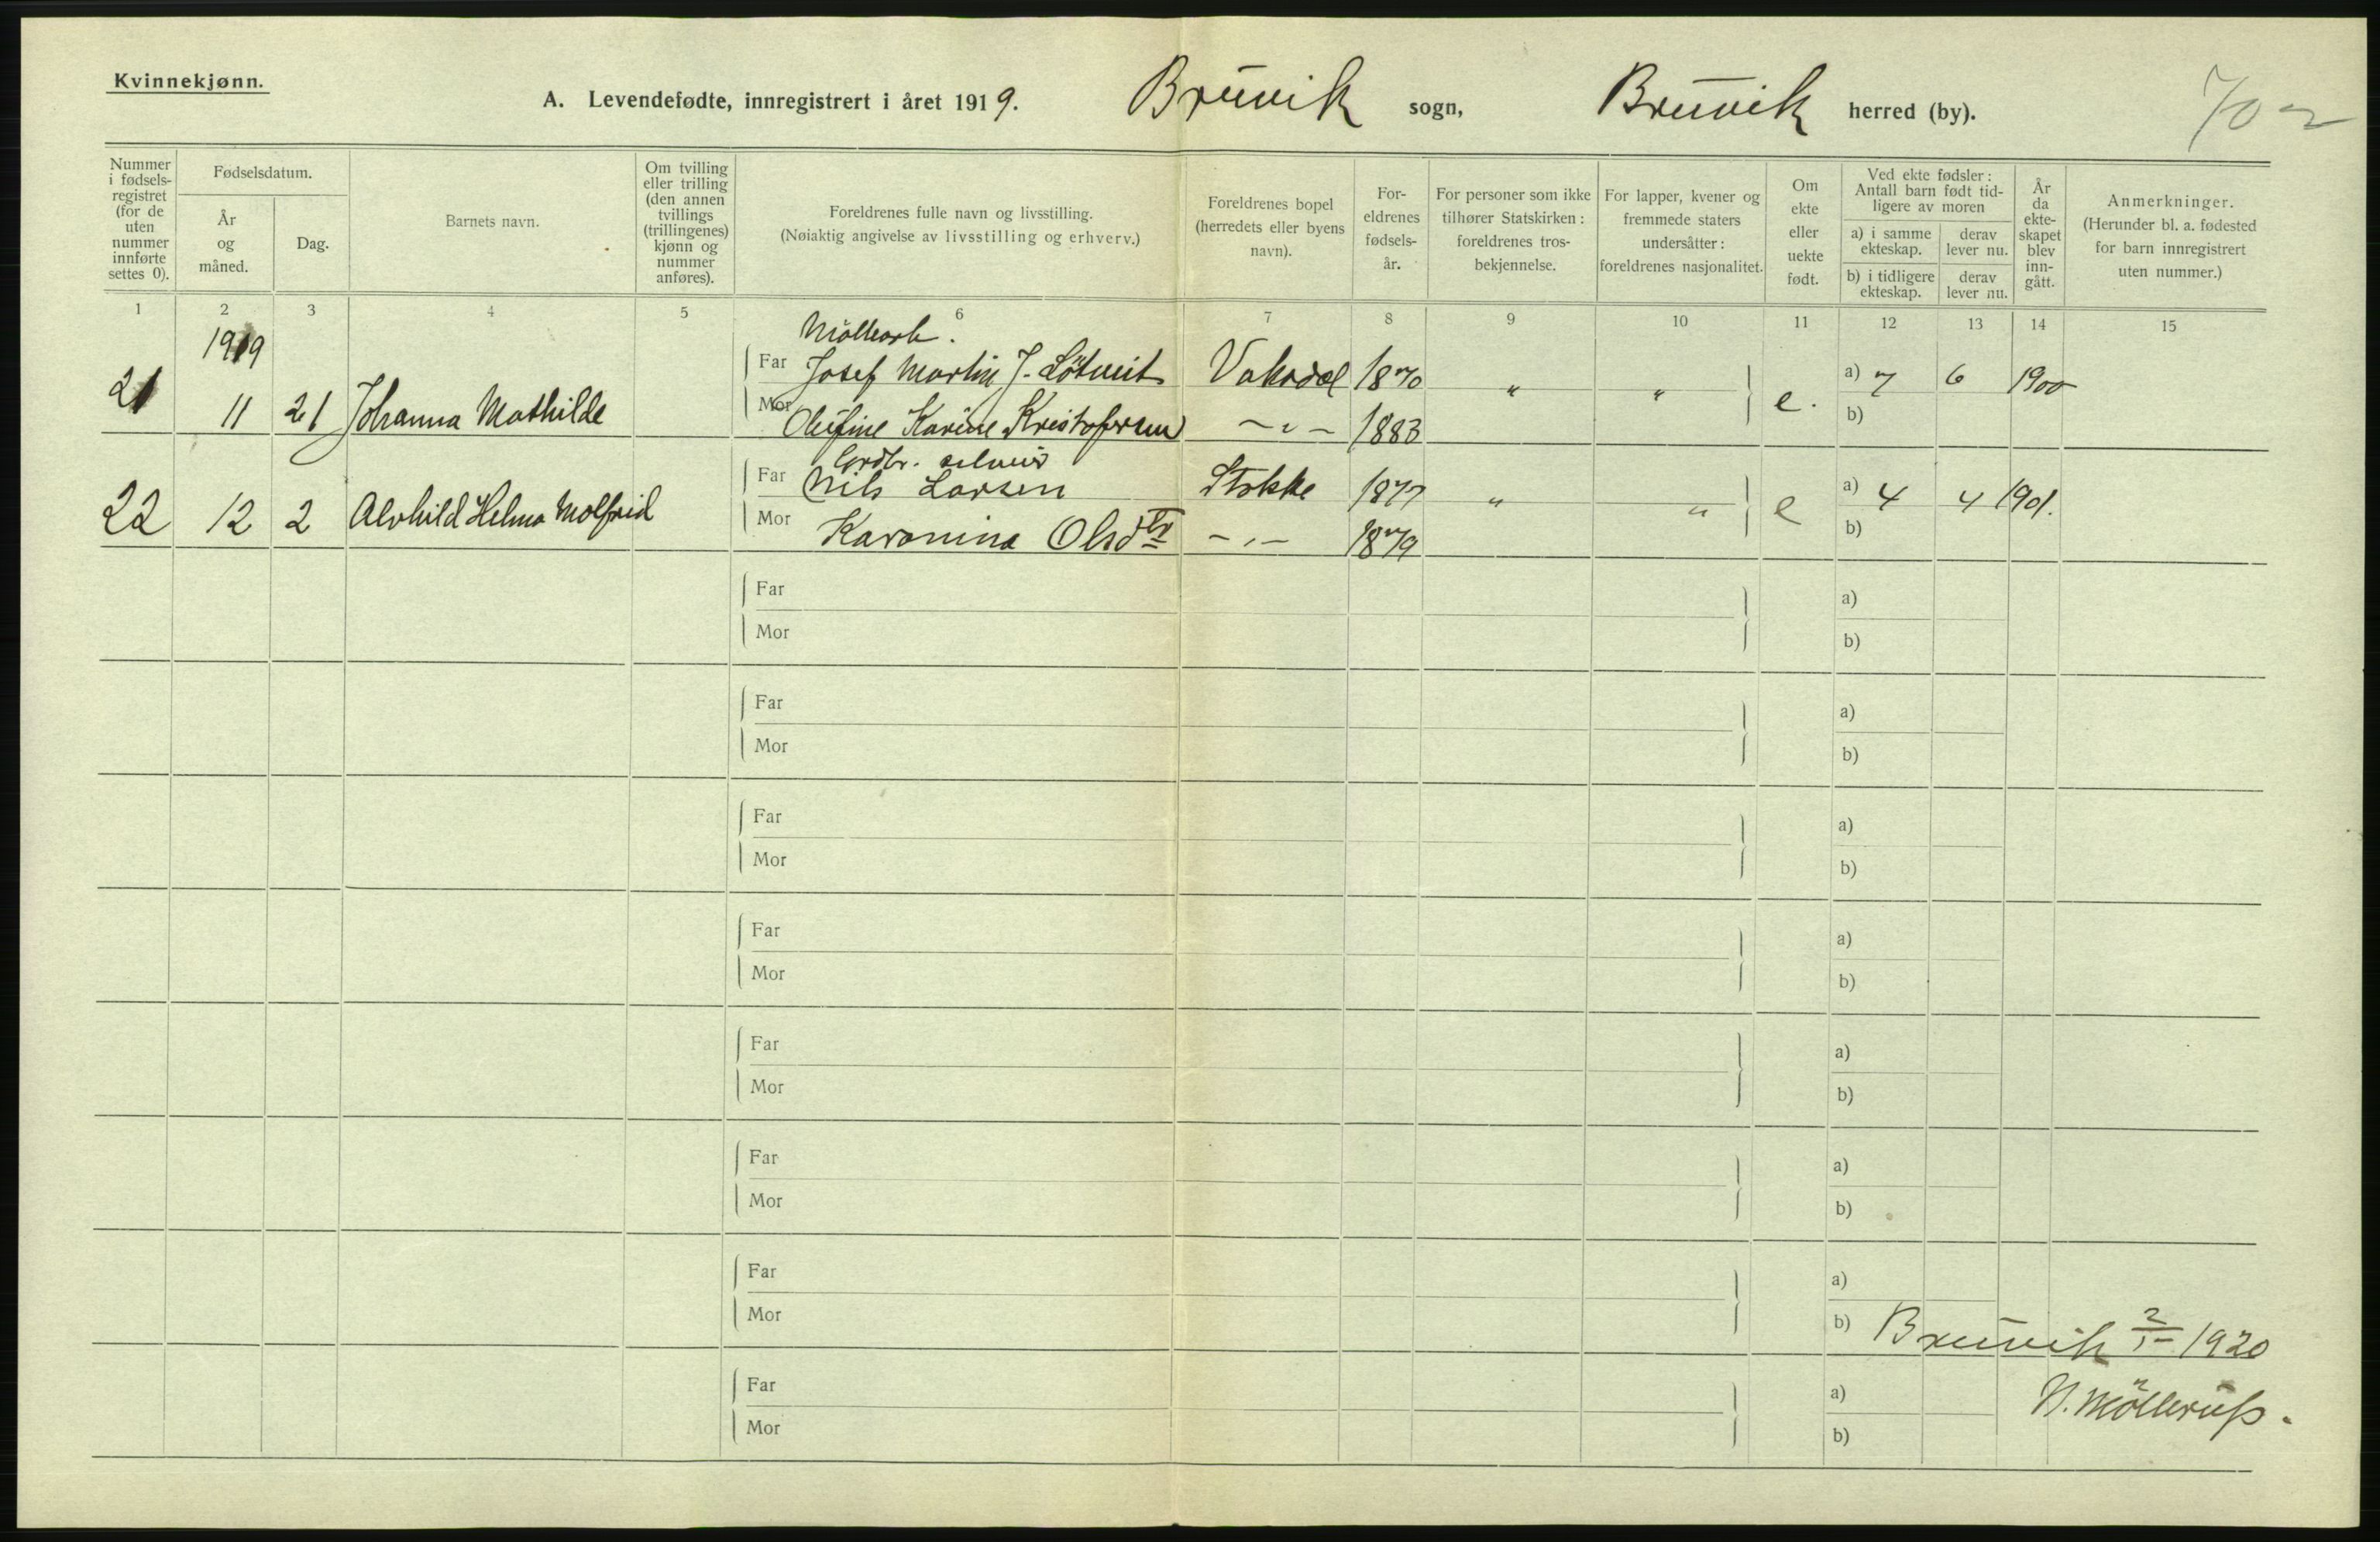 Kvinnekjønn.
A. Levendefødte, innregistrert i året 1919. Bruvik sogn, Bruvik herred (by).
70
Nummer i fødsels-registret (for de uten nummer innførte settes 0).
Fødselsdatum.
År og måned.
Dag.
Barnets navn.
Om tvilling eller trilling (den annen tvillings (trillingenes) kjønn og nummer anføres).
Foreldrenes fulle navn og livsstilling.
(Nøiaktig angivelse av livsstilling og erhverv.)
Foreldrenes bopel (herredets eller byens navn).
For-eldrenes fødsels-år.
For personer som ikke tilhører Statskirken: foreldrenes tros-bekjennelse.
For lapper, kvener og fremmede staters undersåtter: foreldrenes nasjonalitet.
Om ekte eller uekte født.
Ved ekte fødsler: Antall barn født tid-ligere av moren
a) i samme ekteskap.
derav lever nu.
b) i tidligere ekteskap.
derav lever nu.
År da ekte-skapet blev inn-gått.
Anmerkninger.
(Herunder bl. a. fødested for barn innregistrert uten nummer.)
1 2 3 4 5 6 7 8 9 10 11 12 13 14 15
1919
Möllearb.
Far Josef Martin J. Lötveit Vaksdal 1870 " " a) 7 6 1900
21 11 21 Johanna Mathilde e.
Mor Olufine Karine Kristofersen -"- 1883 b)
Grdbr. selveier
Far Nils Larsen Stokke 1877 " " a) 4 4 1901.
22 12 2 Alvhild Helma Molfrid e
Mor Karonina Olsdtr -"- 1879 b)
Far a)
Mor b)
Far a)
Mor b)
Far a)
Mor b)
Far a)
Mor b)
Far a)
Mor b)
Far a)
Mor b)
Far a)
Mor b) Bruvik 2/1 - 1920
Far a) N. Möllerup.
Mor b)